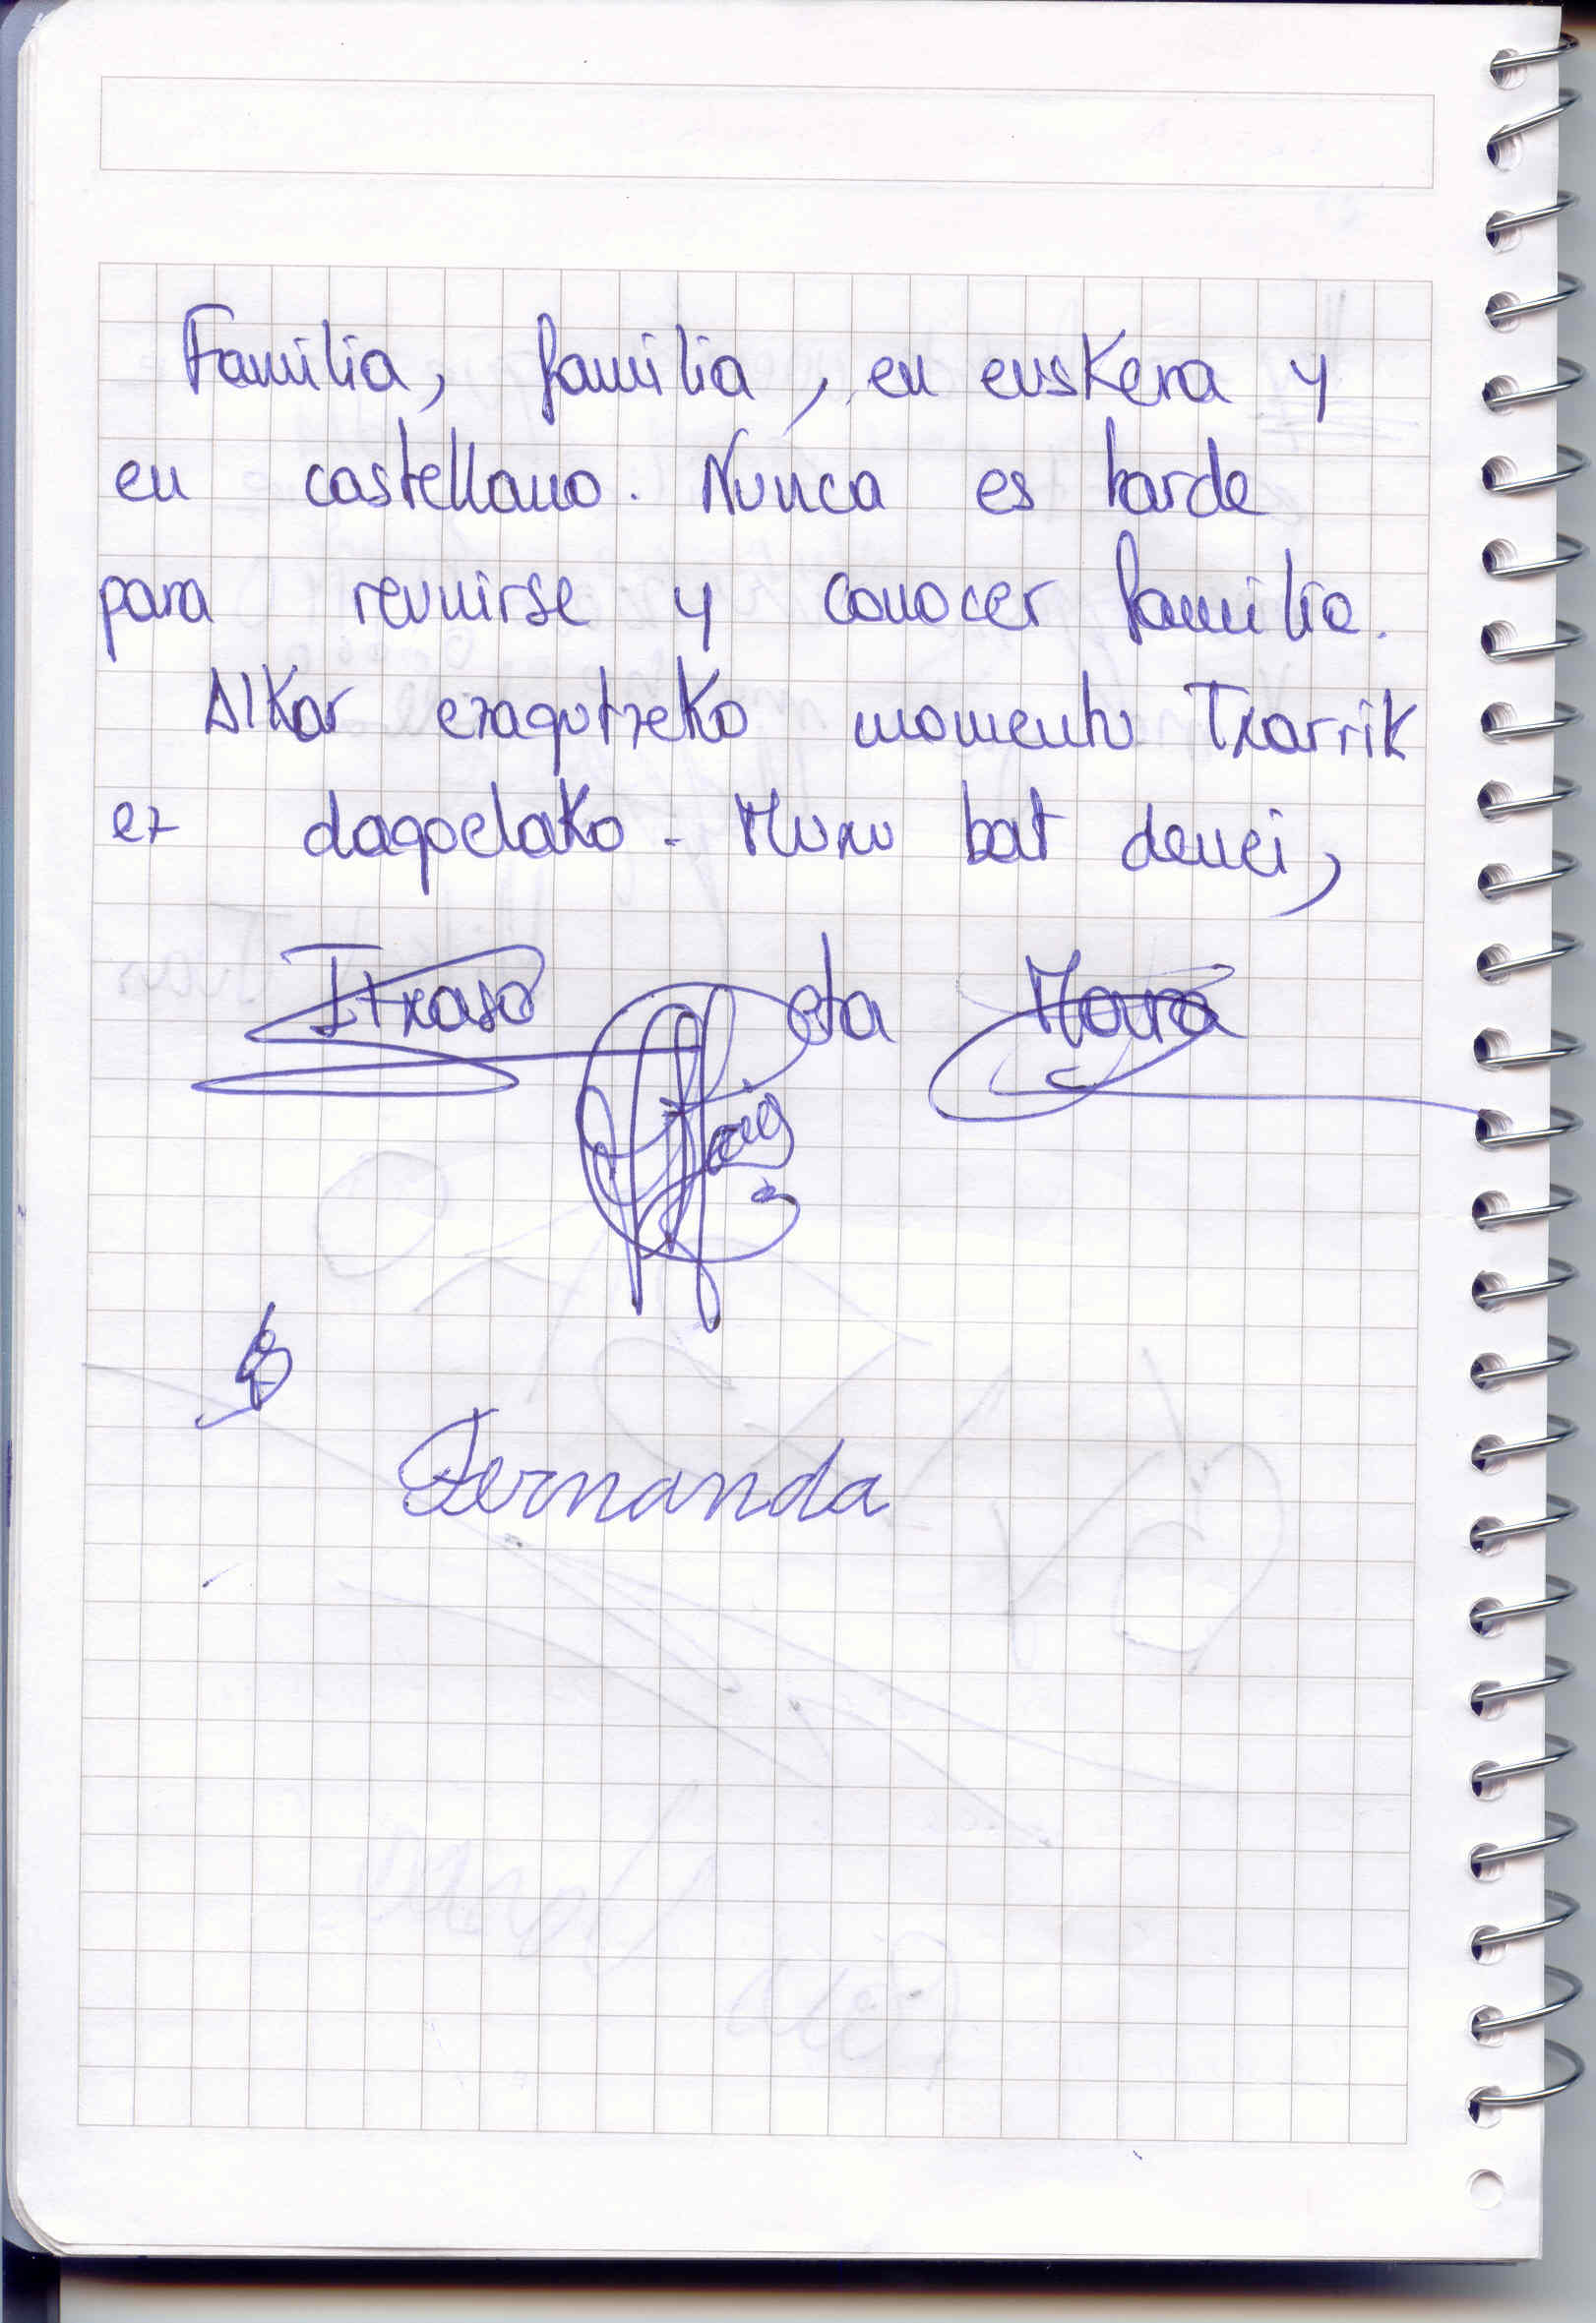 Familia, familia, en euskera y
en castellano. Nunca es tarde
para reunirse y conocer familia.
Alkar ezagutzeko momentu Txarrik
ez dagoelako. Muxu bat denei,
Itxaso eta Mara
Fernanda